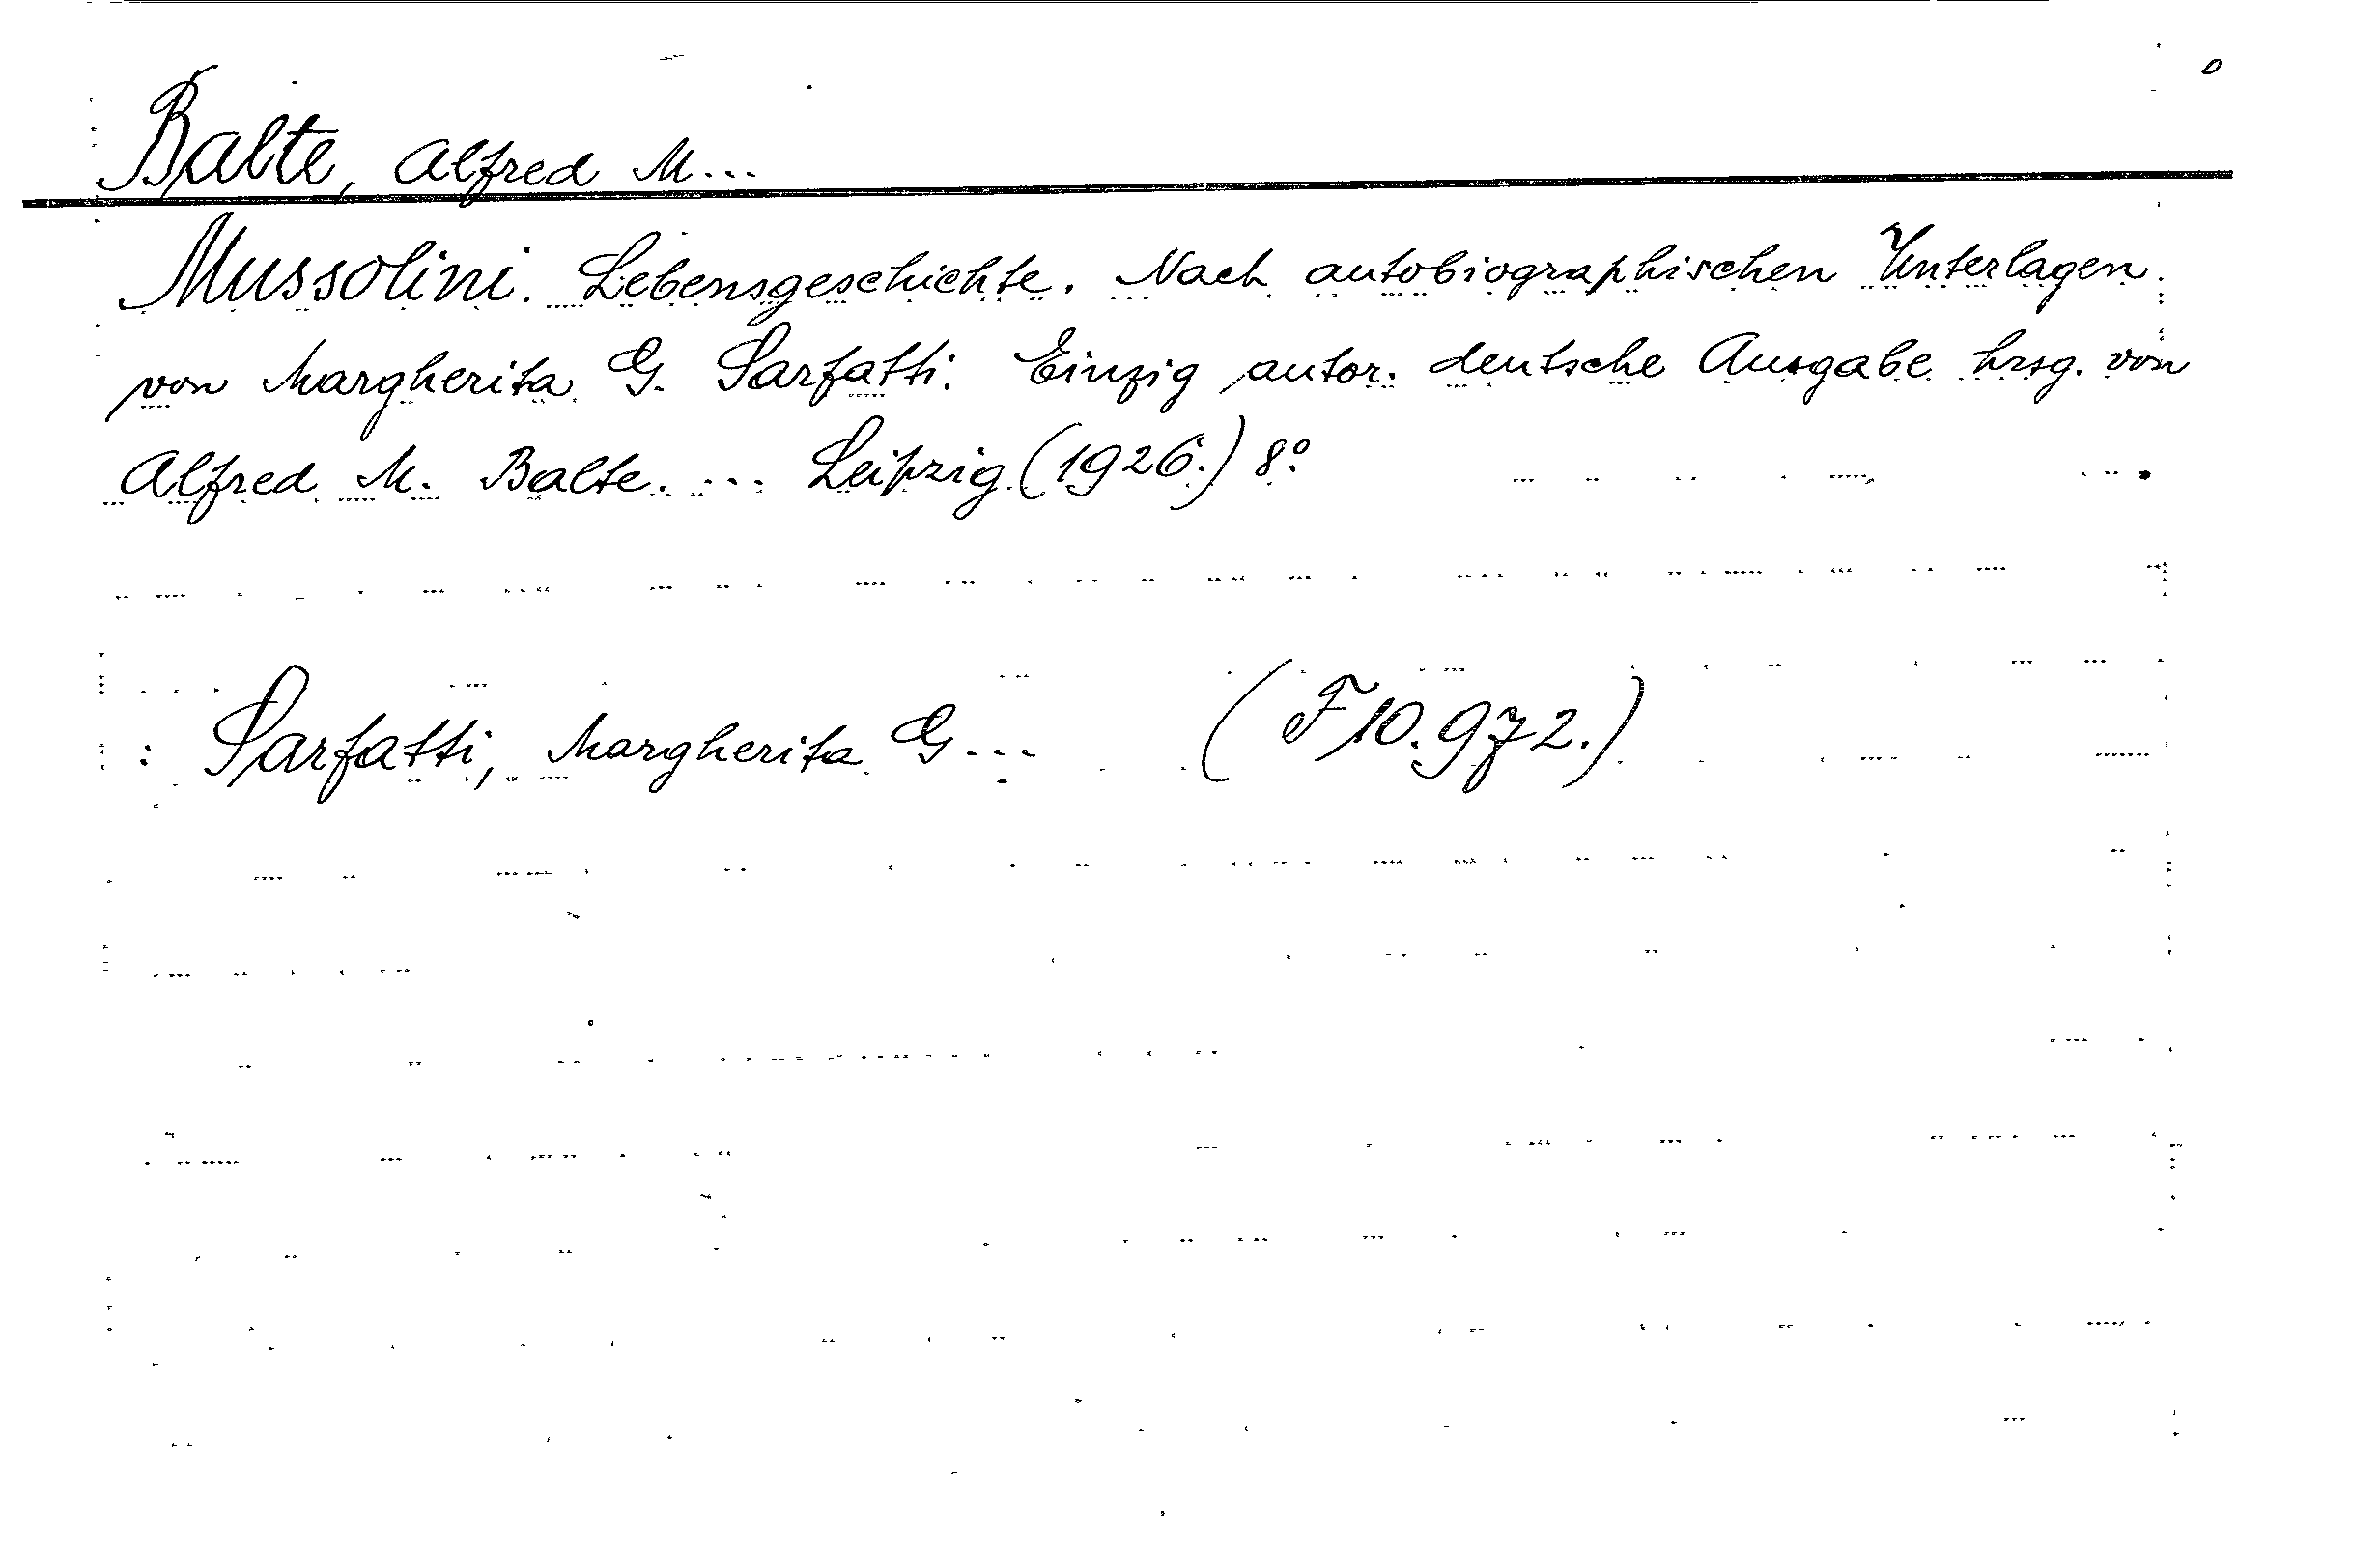 Balte, Alfred M...
Mussolini. Lebensgeschichte. Nach autobiographischen Unterlagen
von Margherita G. Sarfatti. Einzig autor. deutsche Ausgabe hrsg. von
Alfred M. Balte. ... Leipzig (1926.) 8°.
: Sarfatti, Margherita G... (F 10.972.)